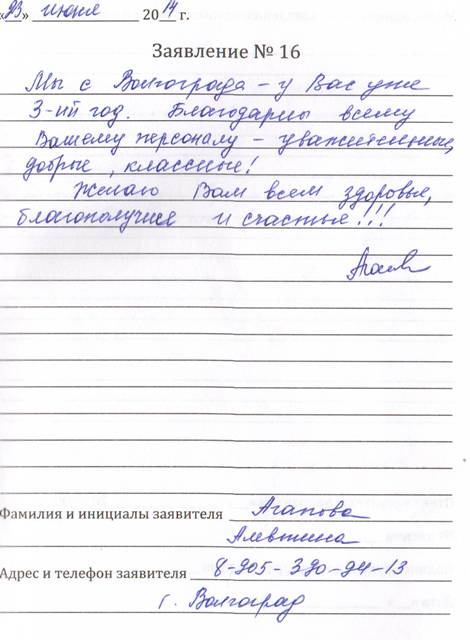 «23» июня 2014 г.
Заявление № 16
Мы с Волгограда – у Вас уже
3-ий год. Благодарны всему
Вашему персоналу – уважительные,
добрые, классные!
Желаю Вам всем здоровья,
благополучия и счастья!!!
Фамилия и инициалы заявителя Агапова
Алевтина
Адрес и телефон заявителя 8-905-390-94-13
г. Волгоград